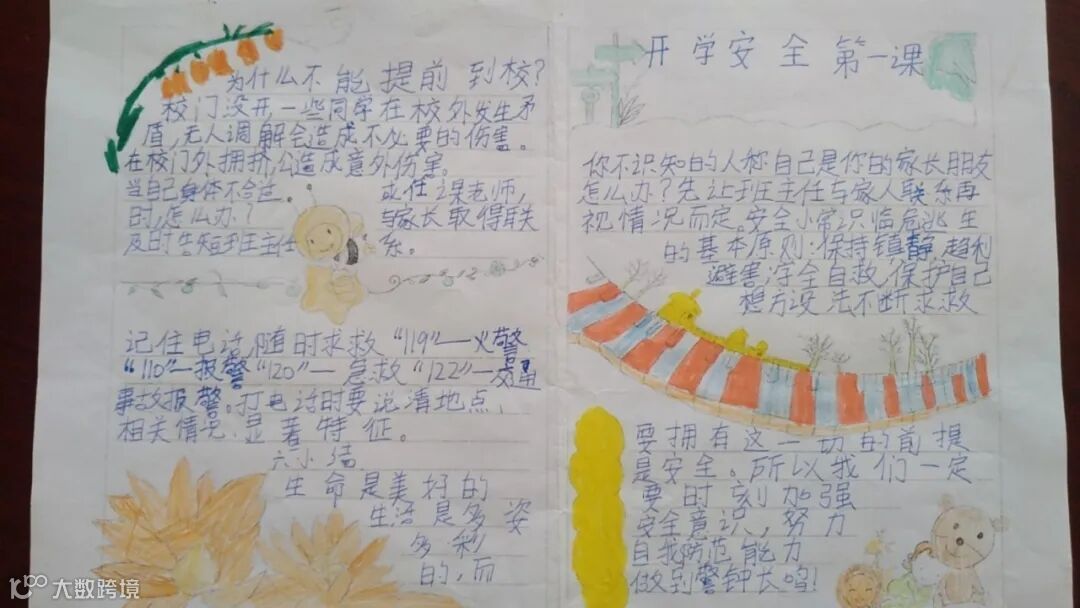 为什么不能提前到校?
校门没开,一些同学在校外发生矛
盾,无人调解会造成不必要的伤害。
在校门外拥挤,会造成意外伤害。
当自己身体不合适。
时,怎么办?
及时告知班主任
或任课老师,
与家长取得联
系。
记住电话,随时求救"119"—火警
"110"—报警"120"—急救"122"—交通
事故报警。打电话时要说清地点,
相关情况,显著特征。
六小结
生命是美好的
生活是多姿
多彩
的,而
开学安全第一课
你不识知的人称自己是你的家长朋友
怎么办?先让班主任与家人联系再
视情况而定。安全小常识临危逃生
的基本原则:保持镇静,趋利
避害,学会自救,保护自己
想方设法不断求救
要拥有这一切的前提
是安全。所以我们一定
要时刻加强
安全意识,努力
自我防范能力
做到警钟长鸣!
10100 大数跨境